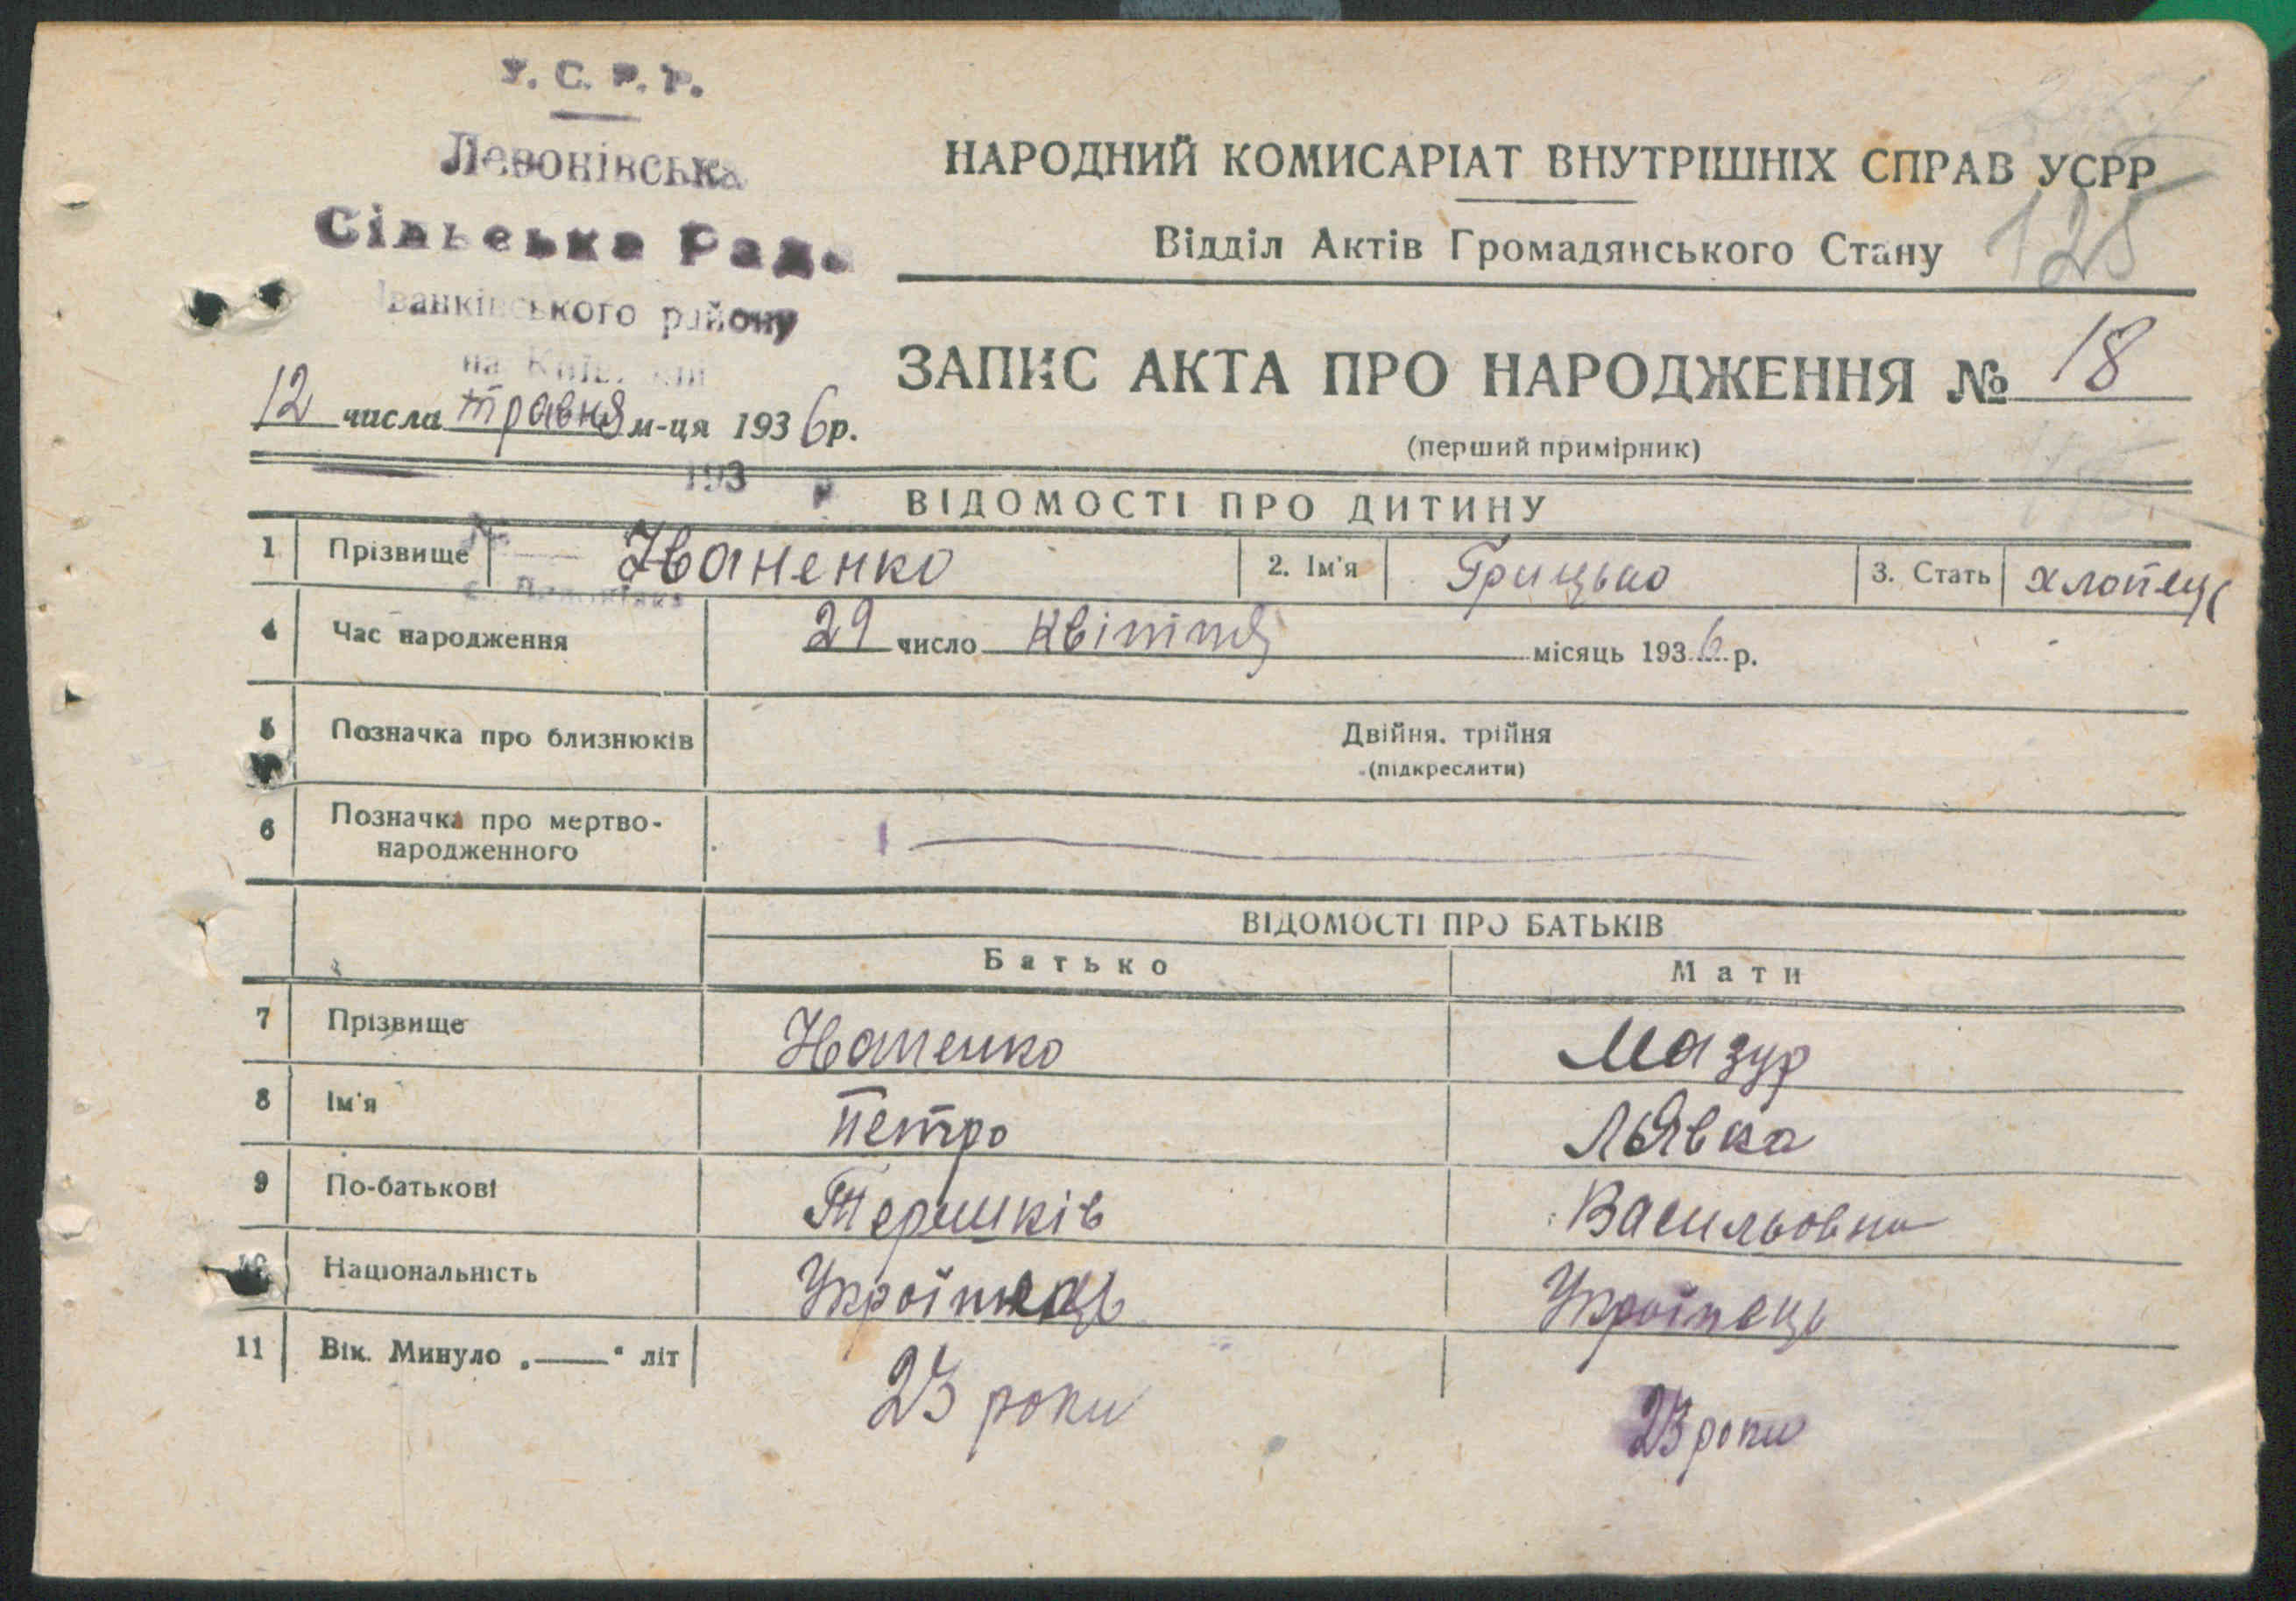 У. С. Р. Р.
Левонівська
Сільська Рада
Іванківського району
на Київ
НАРОДНИЙ КОМИСАРІАТ ВНУТРІШНІХ СПРАВ УСРР
Відділ Актів Громадянського Стану
125
ЗАПИС АКТА ПРО НАРОДЖЕННЯ № 18
(перший примірник)
12 числа травня м-ця 1936 р.
193 р
ВІДОМОСТІ ПРО ДИТИНУ
1 Прізвище Іваненко 2. Ім'я Грицько 3. Стать хлопець
4 Час народження 29 число Квітня місяць 1936 р.
5 Позначка про близнюків Двійня, трійня
(підкреслити)
6 Позначка про мертво-
народженного
ВІДОМОСТІ ПРО БАТЬКІВ
Батько Мати
7 Прізвище Іваненко Мазур
8 Ім'я Петро
9 По-батькові Васильовна
10 Національність Українець Україпець
11 Вік. Минуло „——“ літ 23 роки 23 роки